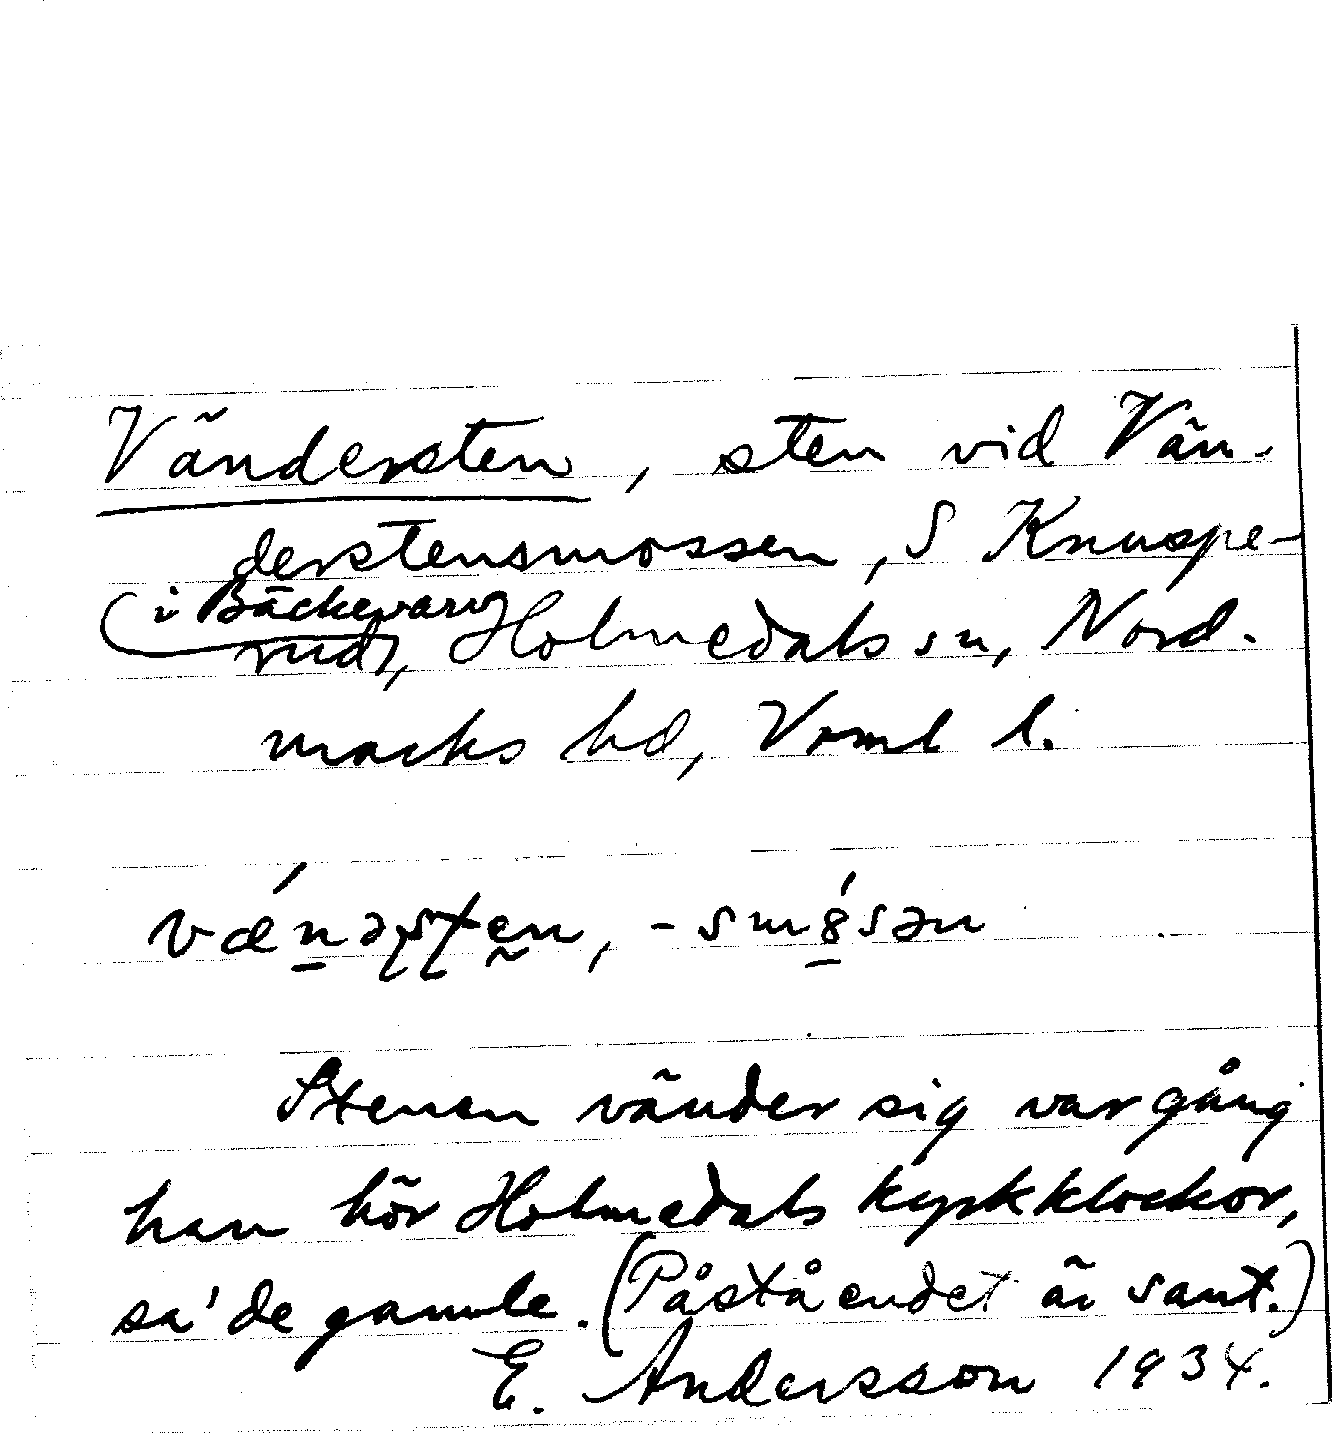 Vändersten, sten vid Vän-
derstensmossen, S Knuspe-
(i Bäckevarv
rud), Holmedals sn, Nord-
marks hd, Vrml l.
vǽn̲əʂʈen̰, -smȣ̲́sən
Stenen vänder sig var gång
han hör Holmedals kyrkklockor,
sa' de gamle. (Påståendet är sant.)
E. Andersson 1934.